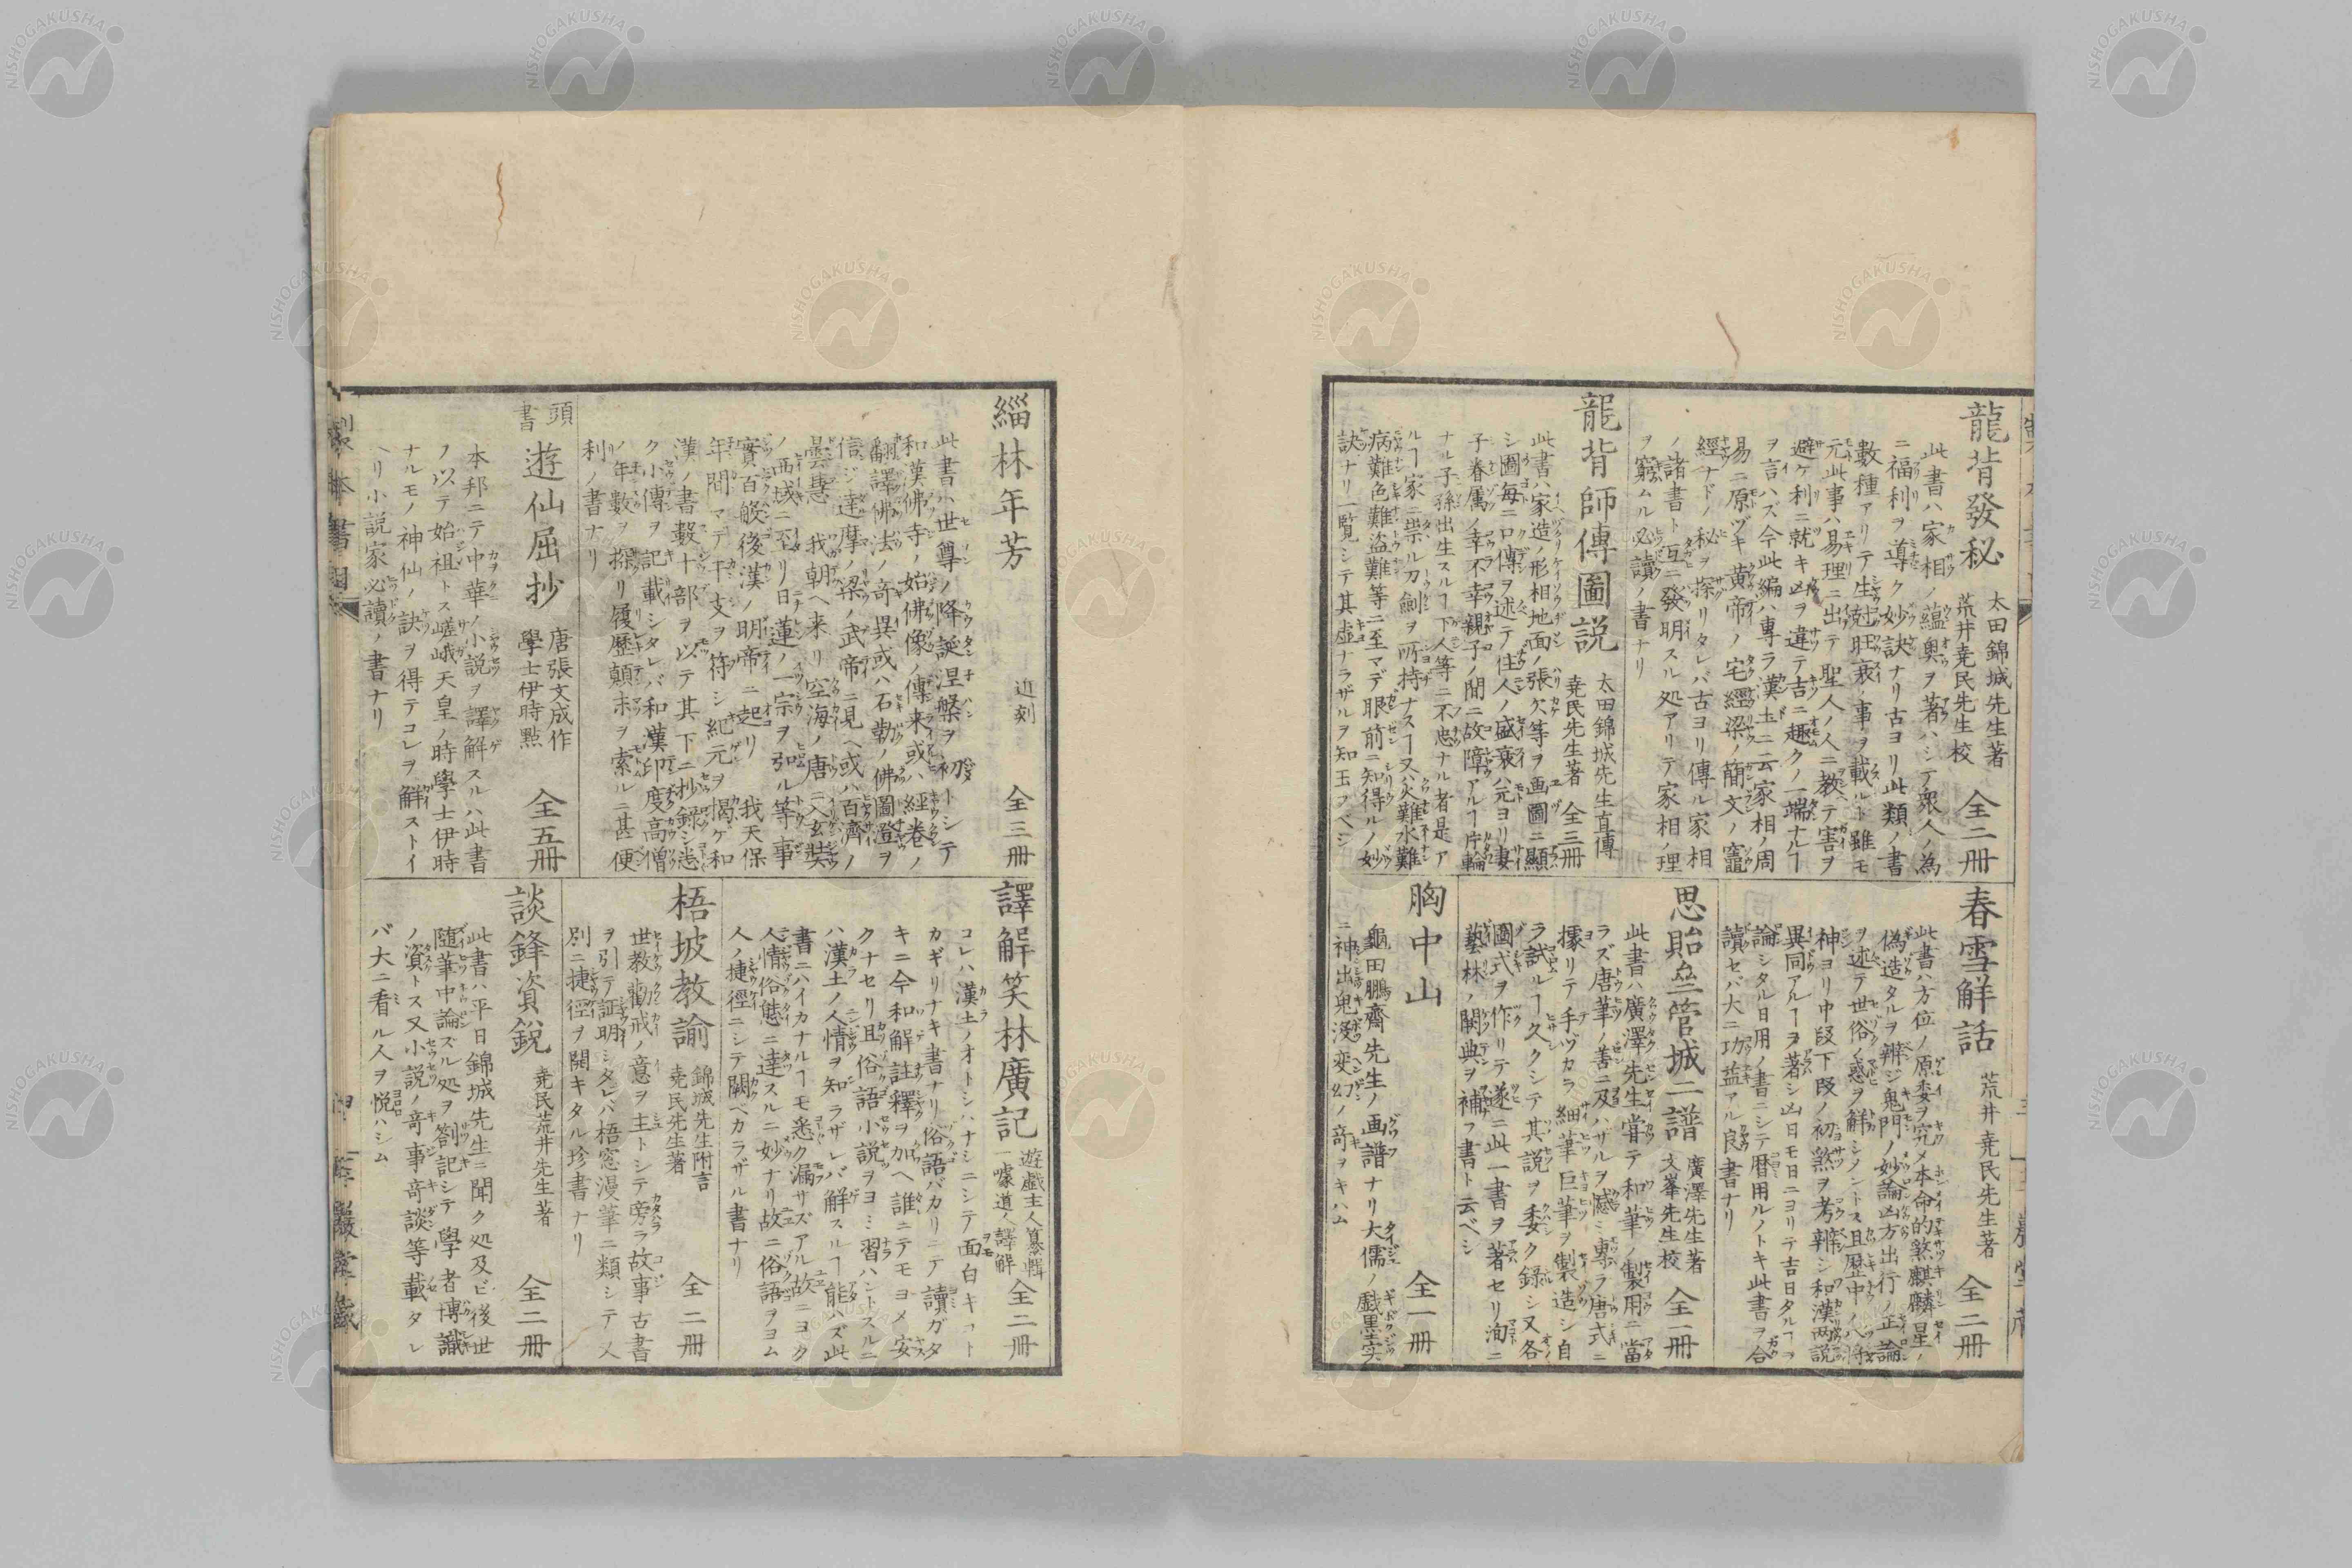 龍背發秘
太田錦城先生著
荒井堯民先生校
全二冊
此書ハ家相ノ蘊奥ヲ著ハシテ衆人ノ為
ニ福利ヲ導ク妙訣ナリ古ヨリ此類ノ書
數種アリテ生尅旺衰ノ事ヲ載ルト雖モ
元此事ハ易理ニ出テ聖人ノ人ニ教テ害ヲ
避ケ利ニ就キ凶ヲ違テ吉ニ趣クノ一端ナルヿ
ヲ言ハズ今此編ハ専ラ漢土ニ云家相ノ周
易ニ原ヅキ黄帝ノ宅經梁ノ簡文ノ竈
經ナドノ秘ヲ探リタレバ古ヨリ傳ル家相
ノ諸書ト互ニ發明スル処アリテ家相ノ理
ヲ窮ムル必讀ノ書ナリ
龍背師傳圖説
太田錦城先生直傳
堯民先生著
全三冊
此書ハ家造ノ形相地面ノ張欠等ヲ画圖ニ顯
シ圖毎ニ口傳ヲ述テ住人ノ盛衰ハ元ヨリ妻
子眷属ノ幸不幸親子ノ間ニ故障アルヿ片輪
ナル子孫出生スルヿ下人等ニ不忠ナル者是ア
ルヿ家ニ祟ル刀劍ヲ所持ナスヿ又ハ火難水難
病難色難盗難等ニ至マデ眼前ニ知得ルノ妙
訣ナリ一覧シテ其虚ナラザルヲ知玉フベシ
春雪解話
荒井堯民先生著
全二冊
此書ハ方位ノ原委ヲ究メ本命的煞麒麟星ノ
偽造タルヲ辨ジ鬼門ノ妙論凶方出行ノ正論
ヲ述テ世俗ノ惑ヲ解シメントス且暦中ノ八將
神ヨリ中段下段ノ初煞ヲ考辨シ和漢両説
異同アルヿヲ著シ凶日モ日ニヨリテ吉日タルヿヲ
論シタル日用ノ書ニシテ暦用ルノトキ此書ヲ合
讀セバ大ニ功益アル良書ナリ
思貽堂管城二譜
廣澤先生著
文峯先生校
全二冊
此書ハ廣澤先生嘗テ和筆ノ製用ニ當
ラズ唐筆ノ善ニ及ハザルヲ憾ミ専ラ唐式ニ
據リテ手ヅカラ細筆巨筆ヲ製造シ自
ラ試ルヿ久クシテ其説ヲ委ク録シ又各
圖式ヲ作リテ遂ニ此一書ヲ著セリ洵ニ
藝林ノ闕典ヲ補フ書ト云ベシ
胸中山
全一冊
龜田鵬齋先生ノ画譜ナリ大儒ノ戯墨実
ニ神出鬼没変幻ノ奇ヲキハム
緇林年芳
近刻
全三冊
此書ハ世尊ノ降誕涅槃ヲ初トシテ
和漢佛寺ノ始佛像ノ傳来或ハ經巻ノ
翻譯佛法ノ奇異或ハ石勒ノ佛圖登ヲ
信ジ達摩ノ梁ノ武帝ニ見ヘ或ハ百濟ノ
曇惠我朝ヘ来リ空海ノ唐ニ入玄奘
ノ西域ニ至リ日蓮ノ一宗ヲ弘ル等事
實百般後漢ノ明帝ニ起リ我天保
年間マデ干支ヲ符シ紀元ヲ掲ゲ和
漢ノ書數十部ヲ以テ其下ニ抄録シ悉
ク小傳ヲ記載シタレバ和漢印度高僧
ノ年數ヲ探リ履歴顛末ヲ索ルニ甚便
利ノ書ナリ
頭書
遊仙屈抄
唐張文成作
學士伊時點
全五冊
本邦ニテ中華ノ小説ヲ譯解スルハ此書
ノ以テ始祖トス嵯峨天皇ノ時學士伊時
ナルモノ神仙ノ訣ヲ得テコレヲ解ストイ
ヘリ小説家必讀ノ書ナリ
譯解笑林廣記
遊戯主人纂輯
一噱道人譯解
全二冊
コレハ漢土ノオトシハナシニシテ面白キヿト
カギリナキ書ナリ俗語バカリニテ讀ガタ
キニ今和解註釋ヲ加ヘ誰ニテモヨメ安
クナセリ且俗語小説ヲヨミ習ハントスルニ
ハ漢土ノ人情ヲ知ラザレバ解スルヿ能ハズ此
書ニハイカナルヿモ悉ク漏サズアル故ニヨク
人情俗態ニ達スルニ妙ナリ故ニ俗語ヲヨム
人ノ捷徑ニシテ闕ベカラザル書ナリ
梧坡教諭
錦城先生附言
堯民先生著
全二冊
世教勸戒ノ意ヲ主トシテ旁ラ故事古書
ヲ引テ証明シタレバ梧窓漫筆ニ類シテ又
別ニ捷徑ヲ開キタル珍書ナリ
談鋒資鋭
堯民荒井先生著
全二冊
此書ハ平日錦城先生ニ聞ク処及ビ後世
随筆中論ズル処ヲ劄記シテ學者博識
ノ資トス又小説ノ奇事奇談等載タレ
バ大ニ看ル人ヲ悦ハシム
製本書目